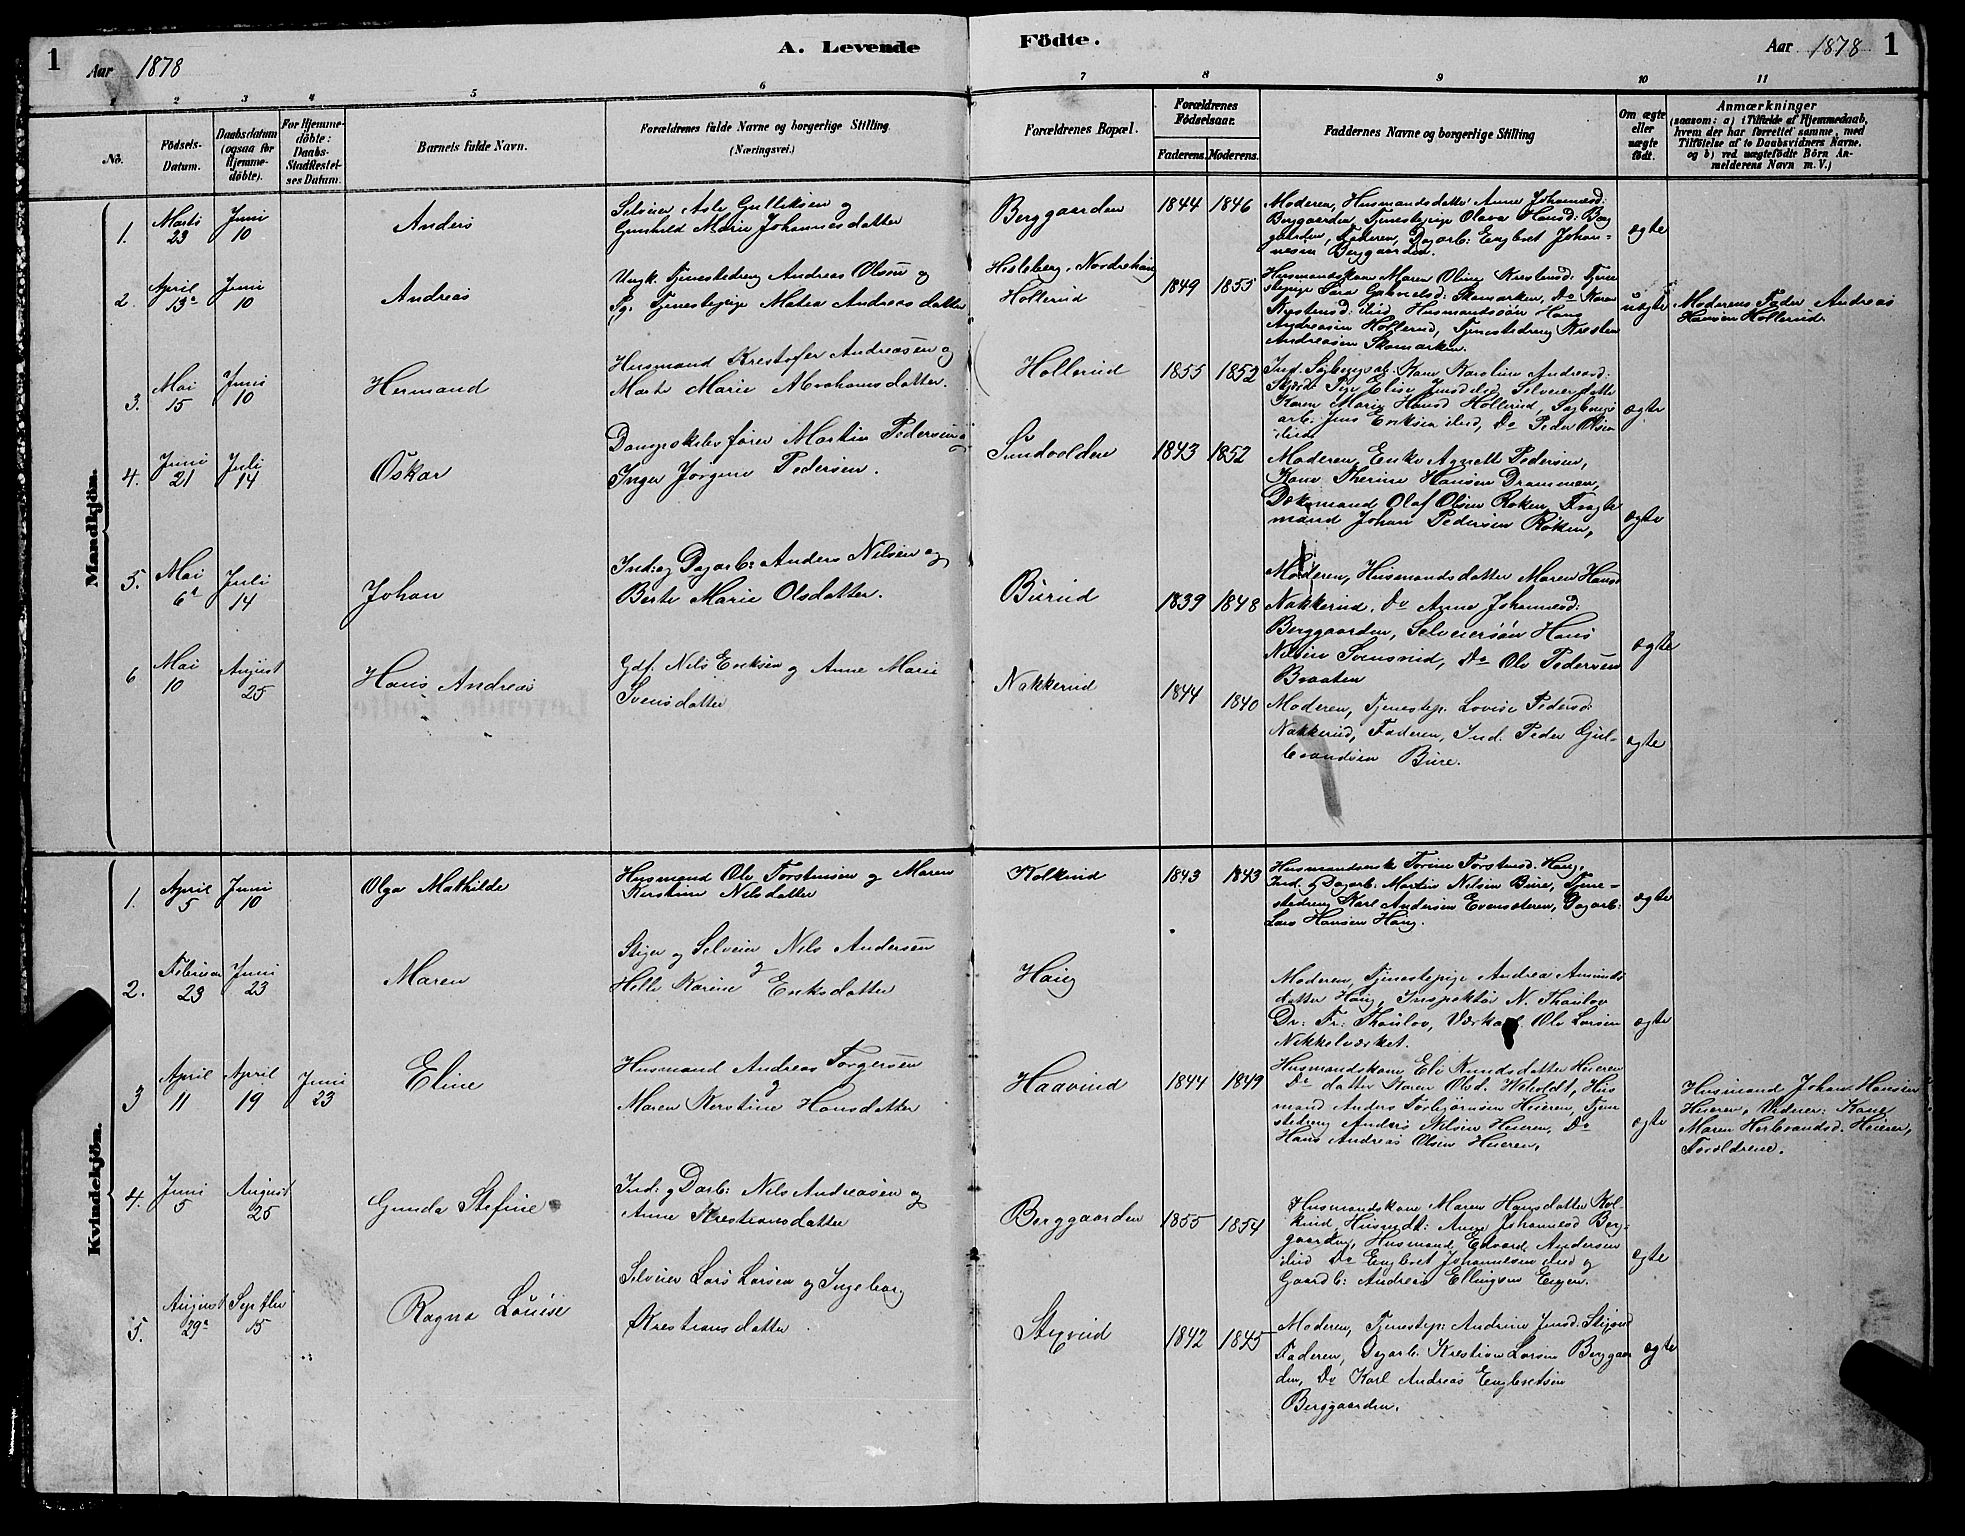 1
Aar 1878
A. Levende Födte.
Aar 1878
1
1 2 3 4 5 6 7 8 9 10 11
No.
Födsels-Datum.
Daabsdatum (ogsaa for Hjemme-döbte).
For Hjemme-döbte: Daabs-Stadfæstel-ses Datum.
Barnets fulde Navn.
Forældrenes fulde Navne og borgerlige Stilling. (Næringsvei.)
Forældrenes Bopæl.
Forældrenes Födselsaar.
Faderens. Moderens.
Faddernes Navne og borgerlige Stilling
Om ægte eller uægte födt.
Anmærkninger
(saasom: a) i Tilfælde af Hjemmedaab,
hvem der har forrettet samme, med
Tilföielse af to Daabsvidners Navne,
og b) ved uægtefödte Börn An-
melderens Navn m. V.)
Mandkjön.
1. Marts 23 Juni 10
Anders
Selveier Asle Gulliksen og
Gunhild Marie Johannesdatter
Berggaarden
1844 1846
Moderen, Husmandsdatter Anne Johannesd:
Berggaarden, Tjenestepige Olava Hansd: Berg
gaarden, Faderen, Dagarb: Engbret Johan-
nesen Berggaarden.
ægte
2. April 13de Juni 10
Andreas
Ungk. Tjenestedreng Andreas Olsen og
Pg. Tjenestepige Matea Andreasdatter
Hesleberg, Norderhaug
Hollerud
1849 1855
Husmandskone Maren Oline Kristensd: Tjene
stepige Sara Gabrielsd: Skamarken, Do Karen
Kristensd: ibid, Husmandssøn Hans
Andreasen Hollerud, Tjenestedreng Kristen
Andreasen Skamarken.
uægte
Moderens Fader Andreas
Hansen Hollerud.
3. Mai 15 Juni 10
Hermand
Husmand Kristofer Andreasen og
Marte Marie Abrahamsdatter.
Hollerud
1855 1852
Ind. Sagbrugsarb. Kone Karoline Andreasd:
Pige Elise Jensd ibid, Selveierdatter
Karen Marie Hansd Hollerud, Sagbrugs
arb. Jens Eriksen ibid, Do Peder Olsen
ibid
ægte
4. Juni 21 Juli 14
Oskar
Dampskibsfører Martin Pedersen og
Inger Jørgine Pedersen.
Sundvolden
1843 1852
Moderen, Enke Agnette Pedersen,
Kone Therine Hansen Drammen,
Dæksmand Olaf Olsen Røken, Fragte
mand Johan Pedersen Røken,
ægte
5. Mai 6te Juli 14
Johan
Ind: og Dagarb: Anders Nilsen og
Berte Marie Olsdatter.
Burud
1839 1848
Moderen, Husmandsdatter Maren Hans
Nakkerud, Do Anne Johannesd:
Berggaarden, Selveiersøn Hans
Nilsen Svensrud, Do Ole Pedersen
Braaten
ægte
6 Mai 10 August 25
Hans Andreas
Gdf. Nils Eriksen og Anne Marie
Svensdatter
Nakkerud
1844 1840
Moderen, Tjenestep. Lovise Pedersd:
Nakkerud, Faderen, Ind. Peder Gul-
brandsen Bure.
ægte
Kvindekjön.
1. April 5 Juni 10
Olga Mathilde
Husmand Ole Torstensen og Maren
Kirstine Nilsdatter
Kolkind
1843 1843
Husmandsenke Torine Torstensd. Haug,
Ind. og Dagarb: Martin Nilsen Bure, Tjene-
stedreng Karl Andersen Evensæteren, Dagarb:
Lars Hansen Haug.
ægte
2. Februar 23 Juni 23
Maren
Stiger og Selveier Nils Andersen
og
Helle Karine Eriksdatter
Haug
Moderen, Tjenestepige Andrea Amunds
datter Haug, Inspektør N. Thaulov
Dr: Fr: Thaulov, Ole Larsen
Nikkelværket.
ægte
3 April 11 April 19 Juni 23
Eline
Husmand Andreas Torgersen
og
Maren Kerstine Hansdatter
Haavind
1844 1849
Husmandskone Eli Knudsdatter Heieren
Do datter Karen Olsd. Hus
mand Anders Torbjørnsen Heieren, Tjene
stedreng Anders Nilsen Heieren, Do
Hans Andreas Olsen Heieren,
ægte
Husmand Johan Hansen
Heieren, Vidner: Kone
Maren Herbrandsd. Heieren,
Forældrene.
4. Juni 5 August 25
Gunda Stefine
Ind: og Darb: Nils Andreasen og
Anne Kristiansdatter
Berggaarden
1855 1854
Husmandskone Maren Hansdatter Kol-
kind, Husmdt: Anne Johannesd Berg-
gaarden, Husmand Edvard Andersen
ibid Do Engbret Johannesen ibid og
Gaardb: Andreas Ellingsen Eigen.
ægte
5. August 29de Septbr 15
Ragna Louise
Selveier Lars Larsen og Ingeborg
Kristiansdatter
Stixrud
1842 1845
Moderen, Tjenestep: Andrine Jensd: Stixrud
Faderen, Dagarb: Kristian Larsen Berggaar
den, Do Karl Andreas Engbretsen
Berggaarden.
ægte